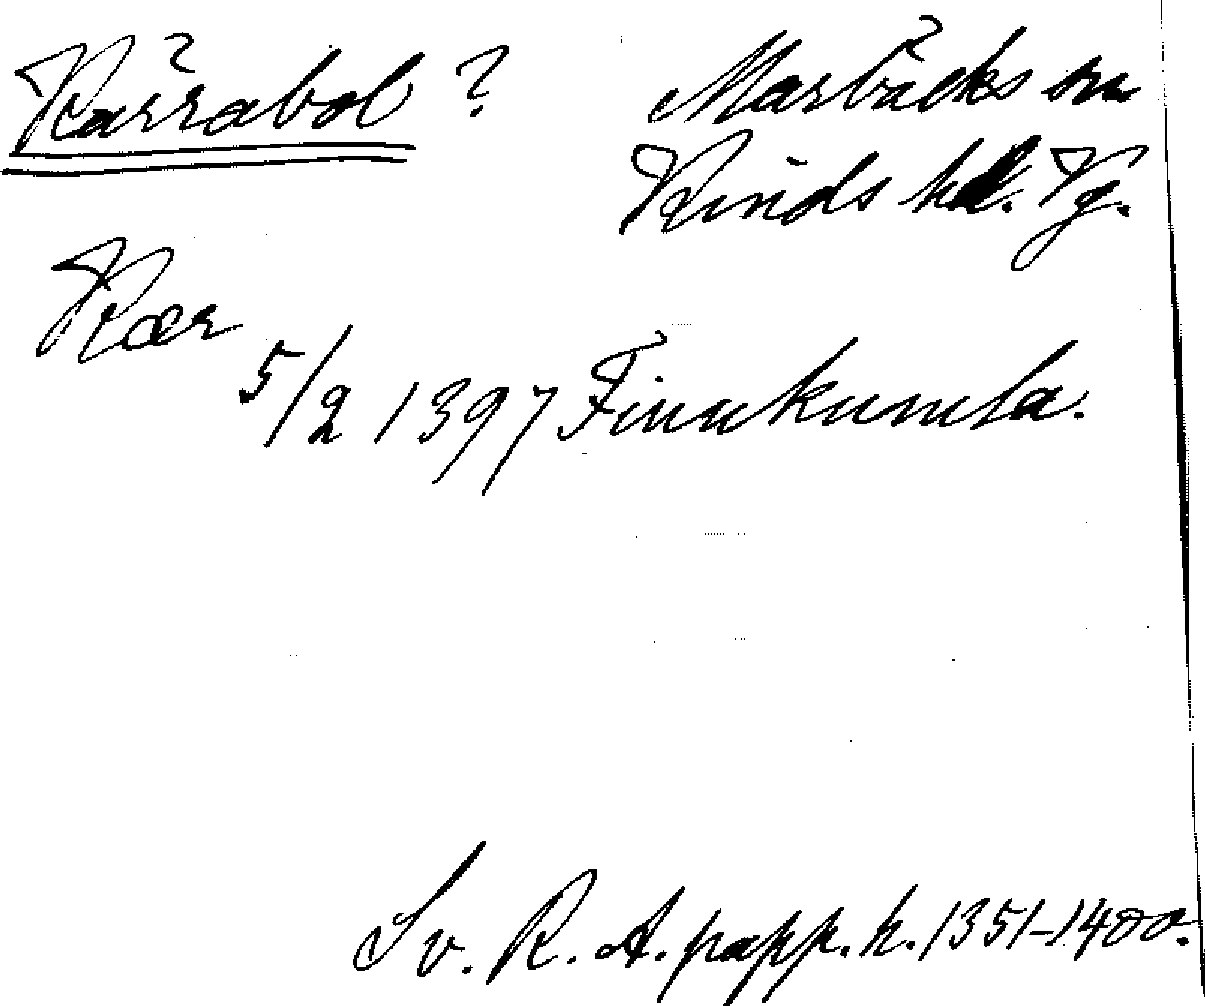 Kärrabol ? Marbäcks sn
Kinds hd. Vg.
Kær
5/2 1397 Finnkumla.
Sv. R. A. papp. h. 1351-1400.